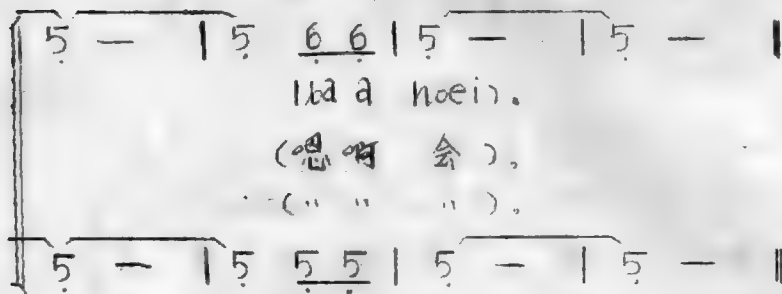 5 — | 5 6 6 | 5 — | 5 — ‖
a hoei).
(嗯啊 会)。
(" " ")。
5 — | 5 5 5 | 5 — | 5 — ‖